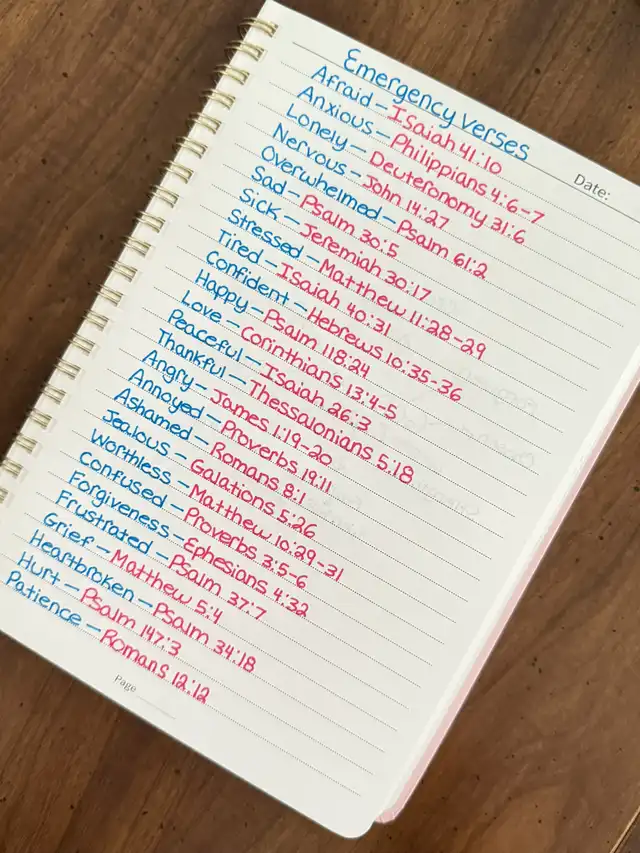 Emergency Verses
Date:
Afraid - Isaiah 41:10
Anxious - Philippians 4:6-7
Lonely - Deuteronomy 31:6
Nervous - John 14:27
Overwhelmed - Psalm 61:2
Sad - Psalm 30:5
Sick - Jeremiah 30:17
Stressed - Matthew 11:28-29
Tired - Isaiah 40:31
Confident - Hebrews 10:35-36
Happy - Psalm 118:24
Love - Corinthians 13:4-5
Peaceful - Isaiah 26:3
Thankful - Thessalonians 5:18
Angry - James 1:19-20
Annoyed - Proverbs 19:11
Ashamed - Romans 8:1
Jealous - Galations 5:26
Worthless - Matthew 10:29-31
Confused - Proverbs 3:5-6
Forgiveness - Ephesians 4:32
Frustrated - Psalm 37:7
Grief - Matthew 5:4
Heartbroken - Psalm 34:18
Hurt - Psalm 147:3
Patience - Romans 12:12
Page